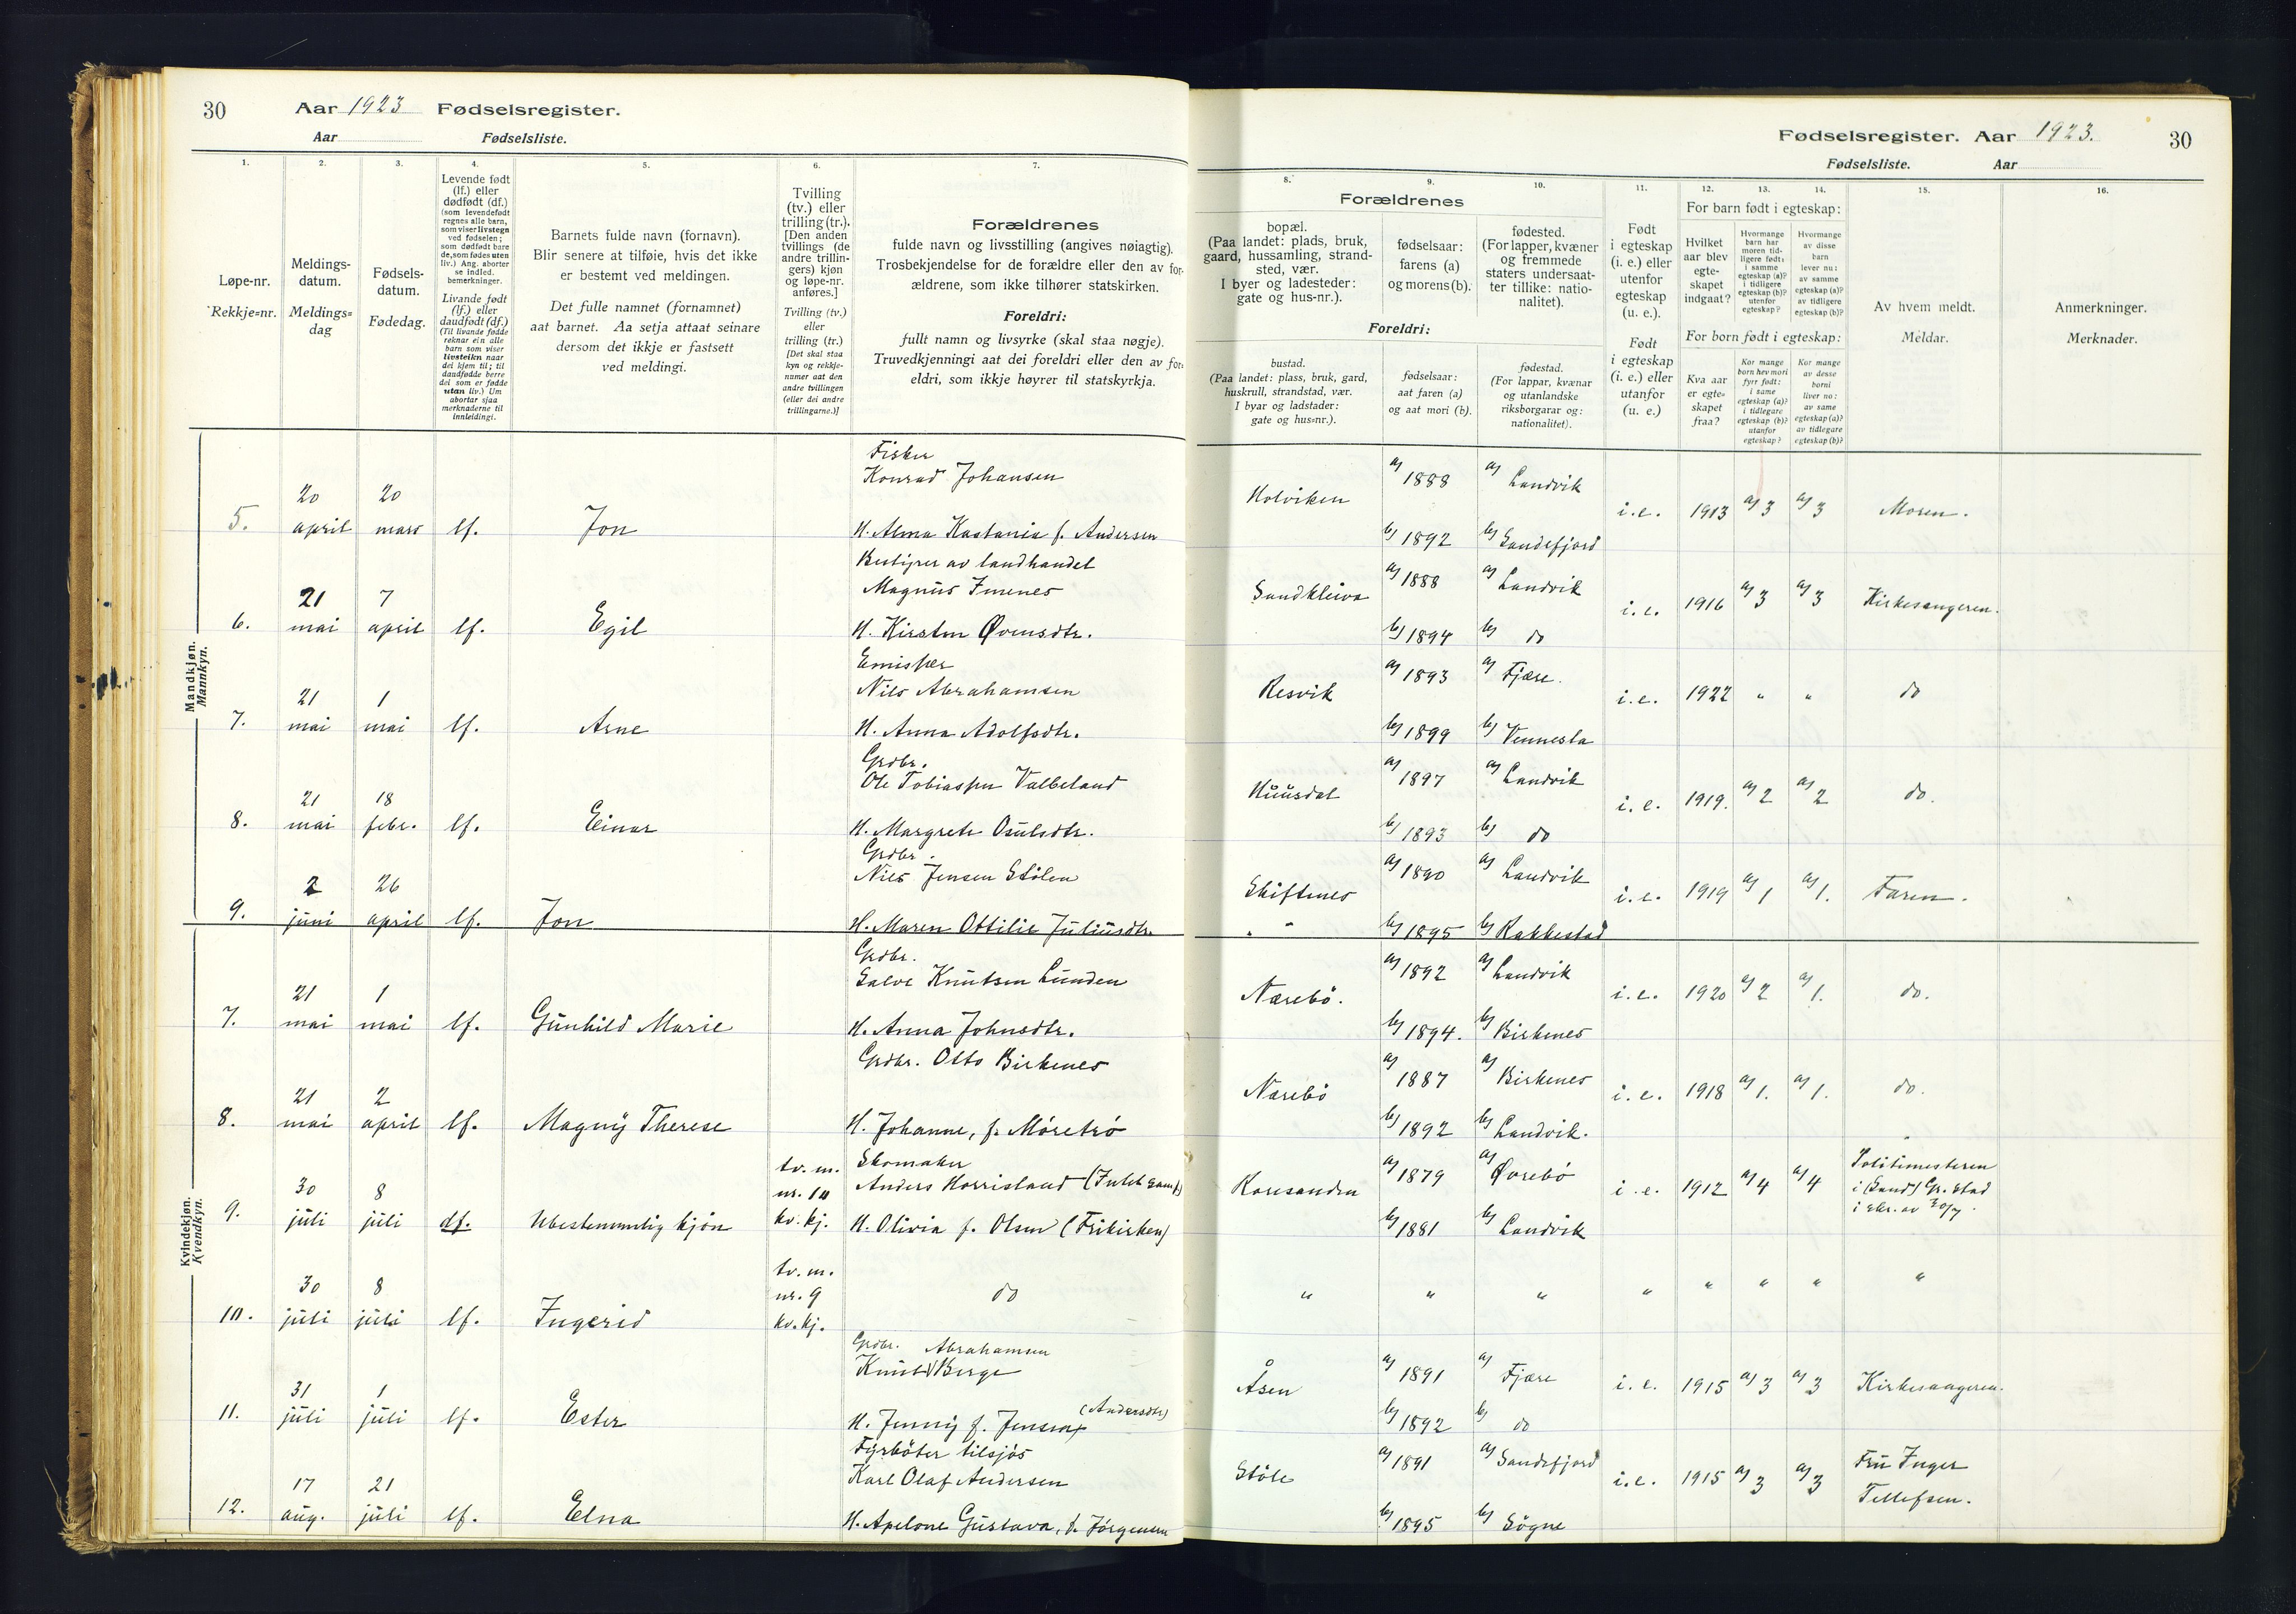 30
Aar 1923 Fødselsregister.
Aar Fødselsliste.
1.
2.
3.
4.
5.
6.
7.
Løpe-nr.
Rekkje=nr.
Meldings-
datum.
Meldings=
dag
Fødsels-
datum.
Fødedag.
Levende født
(lf.) eller
dødfødt (df.)
(som levendefødt
regnes alle barn,
som viser livstegn
ved fødselen;
som dødfødt bare
de, som fødes uten
liv.) Ang. aborter
se indled.
bemerkninger.
Livande født
(lf.) eller
daudfødt (df.)
(Til livande fødde
reknar ein alle
barn som viser
livsteikn naar
dei kjem til; til
daudfødde berre
dei som er fødde
utan liv.) Um
abortar sjaa
merknaderne til
innleidingi.
Barnets fulde navn (fornavn).
Blir senere at tilføie, hvis det ikke
er bestemt ved meldingen.
Det fulle namnet (fornamnet)
aat barnet. Aa setja attaat seinare
dersom det ikkje er fastsett
ved meldingi.
Tvilling
(tv.) eller
trilling (tr.).
[Den anden
tvillings (de
andre trillin-
gers) kjøn
og løpe-nr.
anføres.]
Tvilling (tv.)
eller
trilling (tr.)
[Det skal staa
kyn og rekkje-
numer aat den
andre tvillingen
(eller dei andre
trillingarne.)]
Forældrenes
fulde navn og livsstilling (angives nøiagtig).
Trosbekjendelse for de forældre eller den av for-
ældrene, som ikke tilhører statskirken.
Foreldri:
fullt namn og livsyrke (skal staa nøgje).
Truvedkjenningi aat dei foreldri eller den av for-
eldri, som ikkje høyrer til statskyrkja.
Mandkjøn.
Mannkyn.
5.
20 april
20 mars
lf.
Jon
Fisker
Konrad Johansen
H. Alma Kastania f. Andersen
6.
21 mai
7 april
lf.
Egil
Bestyrer av landhandel
Magnus Imenes
H. Kirsten Øvensdtr.
7.
21 mai
1 mai
lf.
Arne
Emissær
Nils Abrahamsen
H. Anna Adolfsdtr.
8.
21 mai
18 febr.
lf.
Einar
Grdbr.
Ole Tobiassen Valbeland
H. Margrete Osulsdtr.
9.
2 juni
26 april
lf.
Jon
Grdbr.
Nils Jensen Stölen
H. Maren Ottilie Juliusdtr.
Kvindekjøn.
Kvendkyn.
7.
21 mai
1 mai
lf.
Gunhild Marie
Grdbr.
Salve Knutsen Lunden
H. Anna Johnsdtr.
8.
21 mai
2 april
lf.
Magny Therese
Grdbr. Otto Birkenes
H. Johanne, f. Möretrö
9.
30 juli
8 juli
df.
Ubestemmelig kjön
tv. m.
nr. 10
kv. kj.
Skomaker
Anders Horrisland
H. Olivia f. Olsen (Frikirken)
10.
30 juli
8 juli
lf.
Ingerid
tv. m.
nr. 9
kv. kj.
do
11.
31 juli
1 juli
lf.
Ester
Grdbr. Abrahamsen
Knut Berge
(Andersdtr)
H. Jenny f. Jensen
12.
17 aug.
21 juli
lf.
Elna
Fyrböter tilsjös
Karl Olaf Andersen
H. Apelone Gustava, f. Jörgensen
Fødselsregister. Aar 1923.
30
Fødselsliste. Aar
8.
9.
10.
11.
12.
13.
14.
15.
16.
Forældrenes
bopæl.
(Paa landet: plads, bruk,
gaard, hussamling, strand-
sted, vær.
I byer og ladesteder:
gate og hus-nr.).
fødselsaar:
farens (a)
og morens (b).
fødested.
(For lapper, kvæner
og fremmede
staters undersaat-
ter tillike: natio-
nalitet).
Foreldri:
bustad.
(Paa landet: plass, bruk, gard,
huskrull, strandstad, vær.
I byar og ladstader:
gate og hus=nr.).
fødselsaar:
aat faren (a)
og aat mori (b).
fødestad.
(For lappar, kvænar
og utanlandske
riksborgarar og:
nationalitet).
Født
i egteskap
(i. e.) eller
utenfor
egteskap
(u. e.).
Født
i egteskap
(i. e.) eller
utanfor
(u. e.)
For barn født i egteskap:
Hvilket
aar blev
egte-
skapet
indgaat?
Hvormange
barn har
moren tid-
ligere født:
i samme
egteskap (a)?
i tidligere
egteskap (b)?
utenfor
egteskap?
Hvormange
av disse
barn
lever nu:
av samme
egteskap (a)?
av tidligere
egteskap (b)?
For born født i egteskap:
Kva aar
er egte=
skapet
fraa?
Kor mange
born hev mori
fyrr født:
i same
egteskap (a)?
i tidlegare
egteskap (b)?
utanfor
egteskap?
Kor mange
av desse
borni
liver no:
av same
egteskap (a)?
av tidlegare
egteskap (b)?
Av hvem meldt.
Meldar.
Anmerkninger.
Merknader.
Holviken
a) 1888
b) 1892
a) Landvik
b) Sandefjord
i.e. 1913 a) 3 a) 3 Moren.
Sandkleiva
a) 1888
b) 1894
a) Landvik
b) do
i.e. 1916 a) 3 a) 3 Kirkesangeren.
Resvik
a) 1893
b) 1899
a) Fjære.
b) Vennesla
i.e. 1922 " " do
Kuusdal
a) 1897
b) 1893
a) Landvik
b) do
i.e. 1919. a) 2 a) 2 do.
Skiftenes
a) 1890
b) 1895
a) Landvik
b) Rakkestad
i.e. 1919 a) 1 a) 1. Faren.
Nærebö.
a) 1892
b) 1894.
a) Landvik
b) Birkenes
i.e. 1920 a) 2 a) 1. do.
Nærebö
a) 1887
b) 1892
a) Birkenes
b) Landvik.
i.e. 1918 a) 1. a) 1. do.
Roresanden
a) 1879
b) 1881
a) Øvrebö
b) Landvik
i.e. 1912 a) 4 a) 4
Politimesteren
i (Sand) Gr.stad
i skr. av 30/7.
" " " " " " " "
Åsen
a) 1891
b) 1892
a) Fjære
b) do
i.e. 1915 a) 3 a) 3 Kirkesangeren.
Stöle
a) 1891
b) 1895
a) Sandefjord
b) Sögne
i.e. 1915 a) 3 a) 3
Fru Inger
Tellefsen.